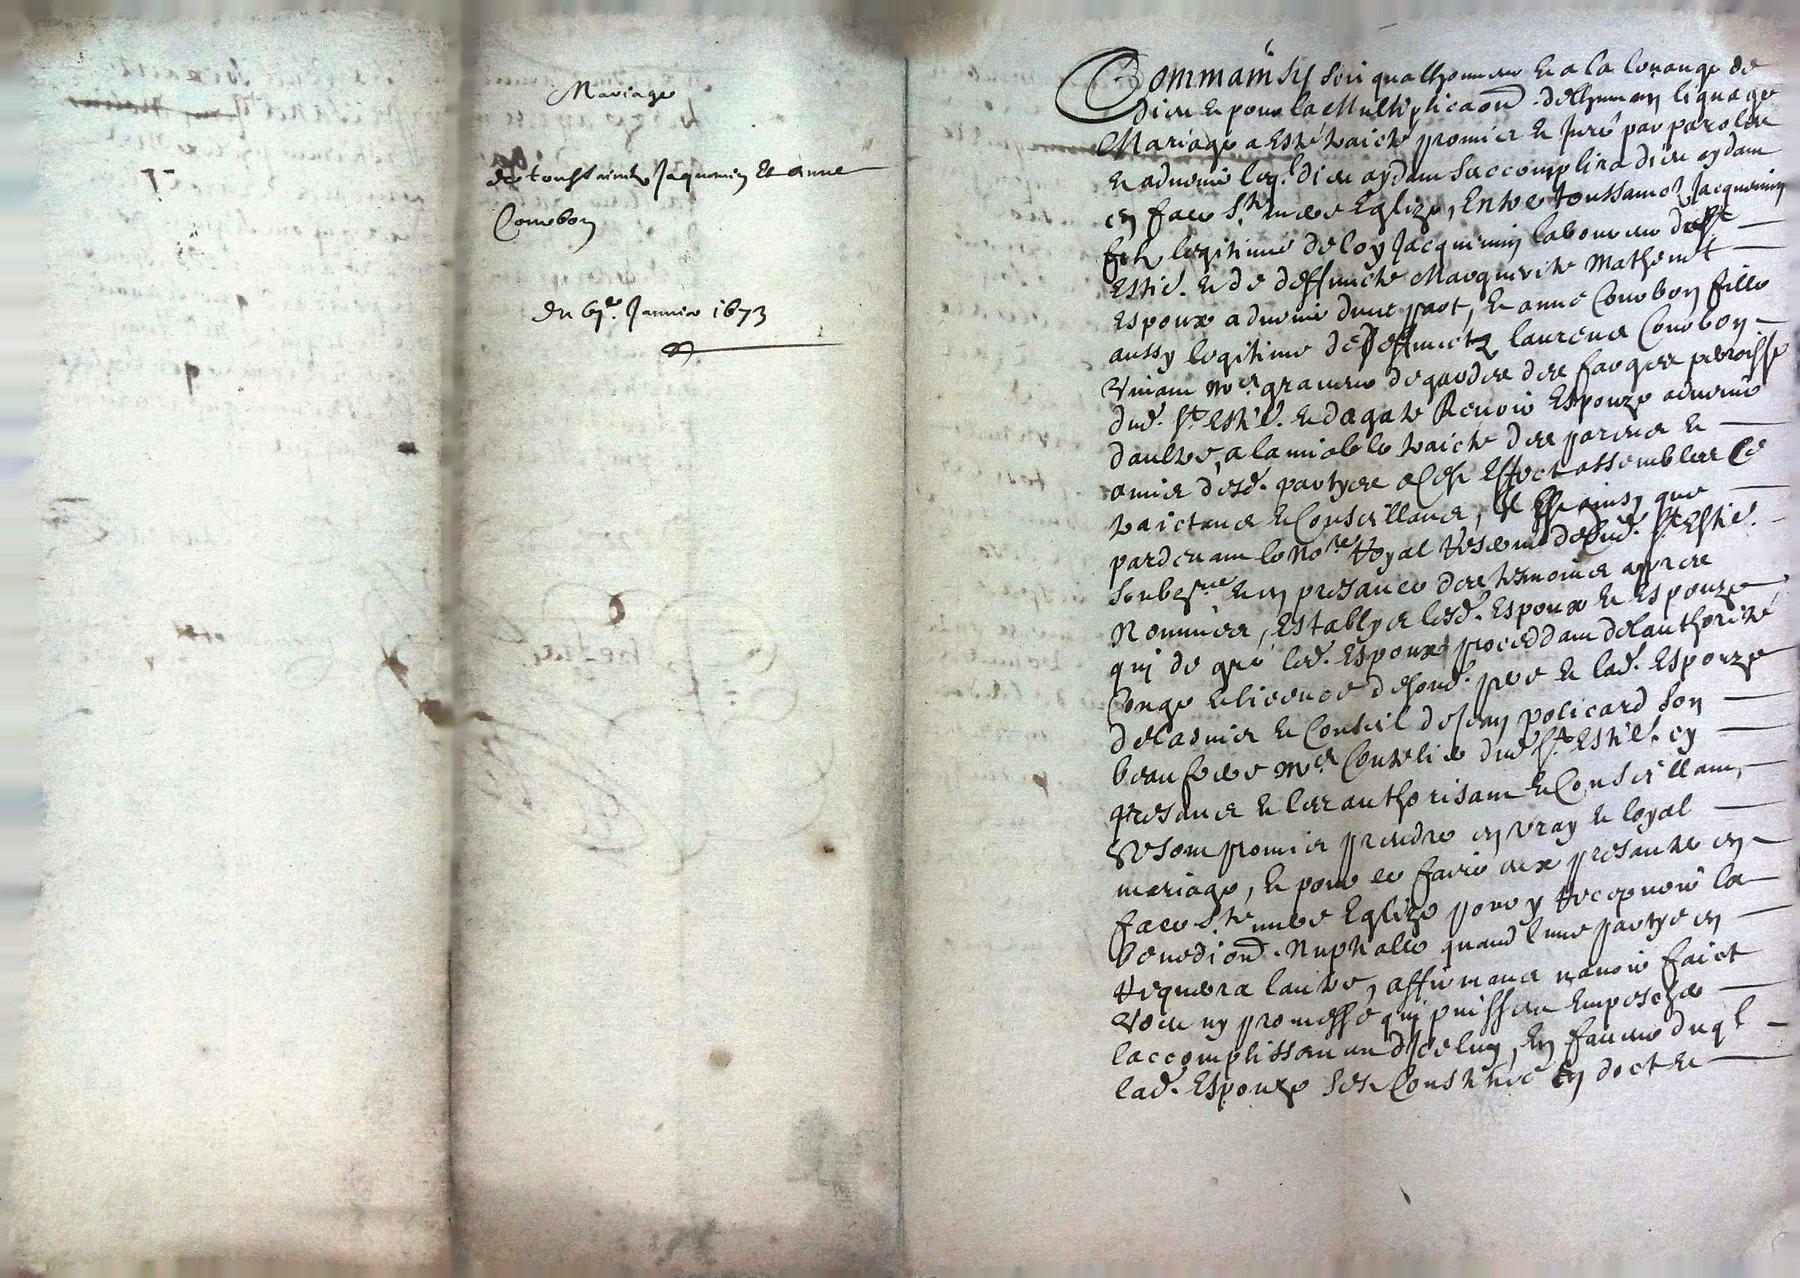 Mariage
de toussainctz Jaquemin Et anne
Courbon
du 6e. Janvier 1673
Comme ainsy soit qua lhonneur Et a la louange de
dieu Et pour la Multiplicaõn de lhumain lignage
Mariage a Esté traicté promis Et Juré par parolles
Et advenir leql. dieu aydant saccomplira dieu aydant
en face Ste. mere Eglize, Entre toussainctz Jacquemin
filz legitime de loy Jacquemin laboureur de St.
Estie. Et de deffuncte Marguerite Mathevet
Espoux advenir dune part, Et anne Courbon fille
aussy legitime de deffunctz laurens Courbon
vivant mre. graveur de gardes des forges perroisse
dud. St. Estie. Et dagate Renoir Espouze advenir
daultre, a lamiable traicté des parens Et
amis desd. partyes a cest Effect assembles Ce
traictans Et Conseillans, Est ainsy que
pardevant le Nore. Royal reservé dud. St. Estie.
soubzsné Et en presance des tesmoins appres
Nommés, Establys lesd. Espoux Et Espouze
qui de gré led. Espoux proceddant de lauthorité
Congé Et licence de sond. pere Et lad. Espouze
de ladvis Et Conseil de Jean policard son
beau frere mre. Coutelier dud. St. Estie. en
presance Et les authorisant Et Conseillant,
se sont promis prendre en vray Et loyal
mariage, Et pour ce faire se presanter en
face Ste. mere Eglize pour y recepvoir la
benediõn Nuptialle quand lune partye en
requerra lautre, affirmans navoir faict
voeu ny promesse qui puissent Empescher
laccomplissement dicelluy, En faveur duql
lad. Espouze sest Constitué En doct Et